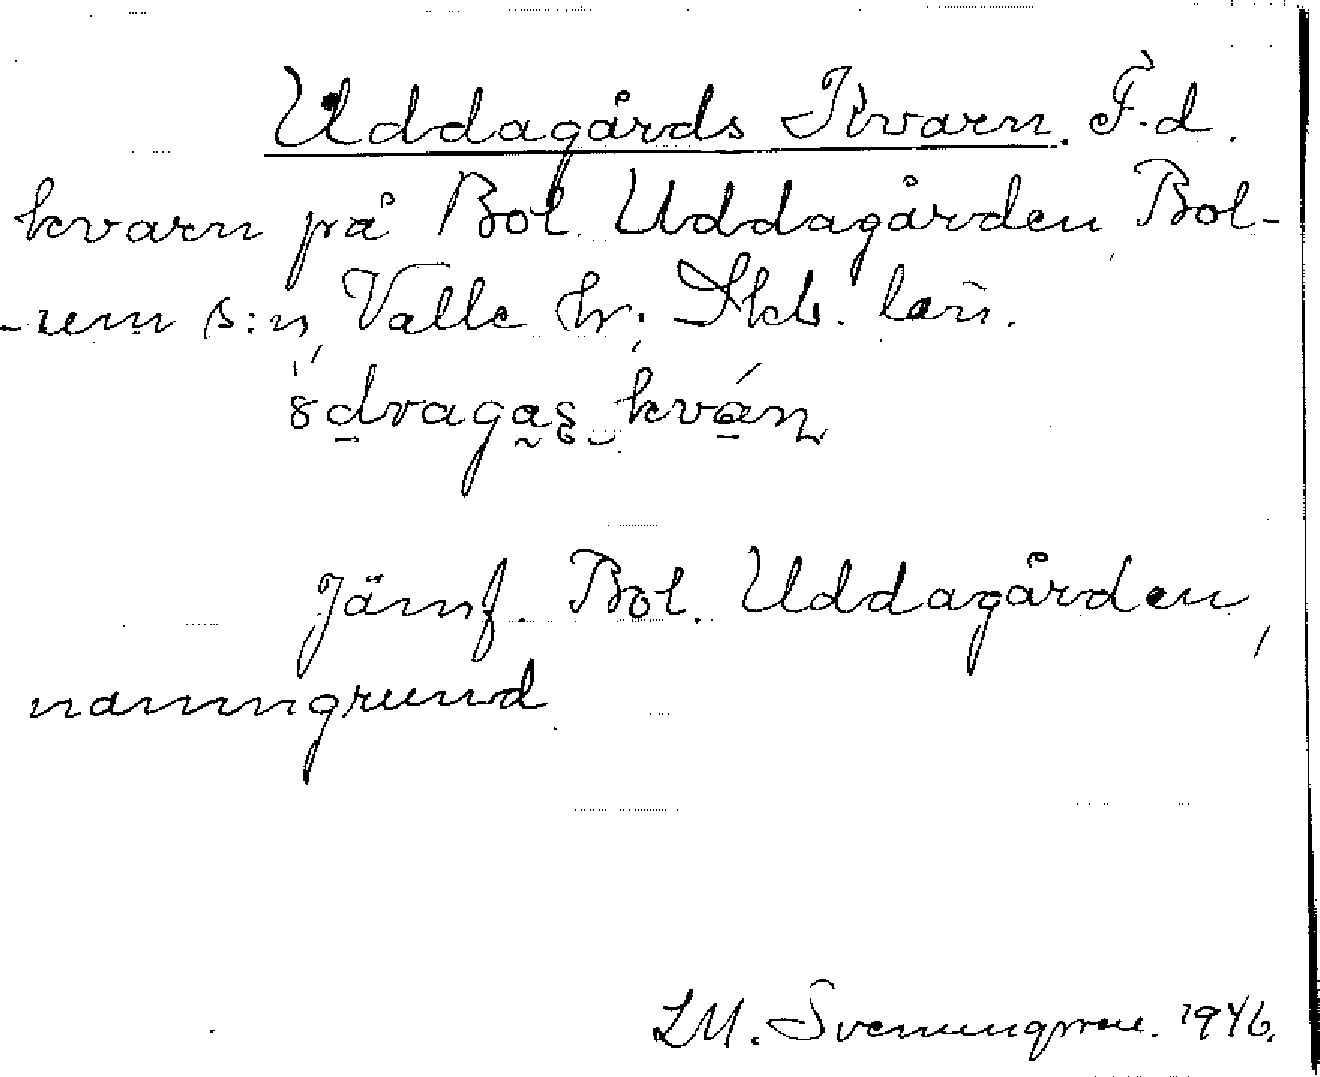 Uddagårds Kvarn. F.d.
kvarn på Bol. Uddagården, Bol-
-um s:n, Valle hr; Skb. län.
Jämf. Bol. Uddagården,
namngrund
LM. Svenungsson. 1946.